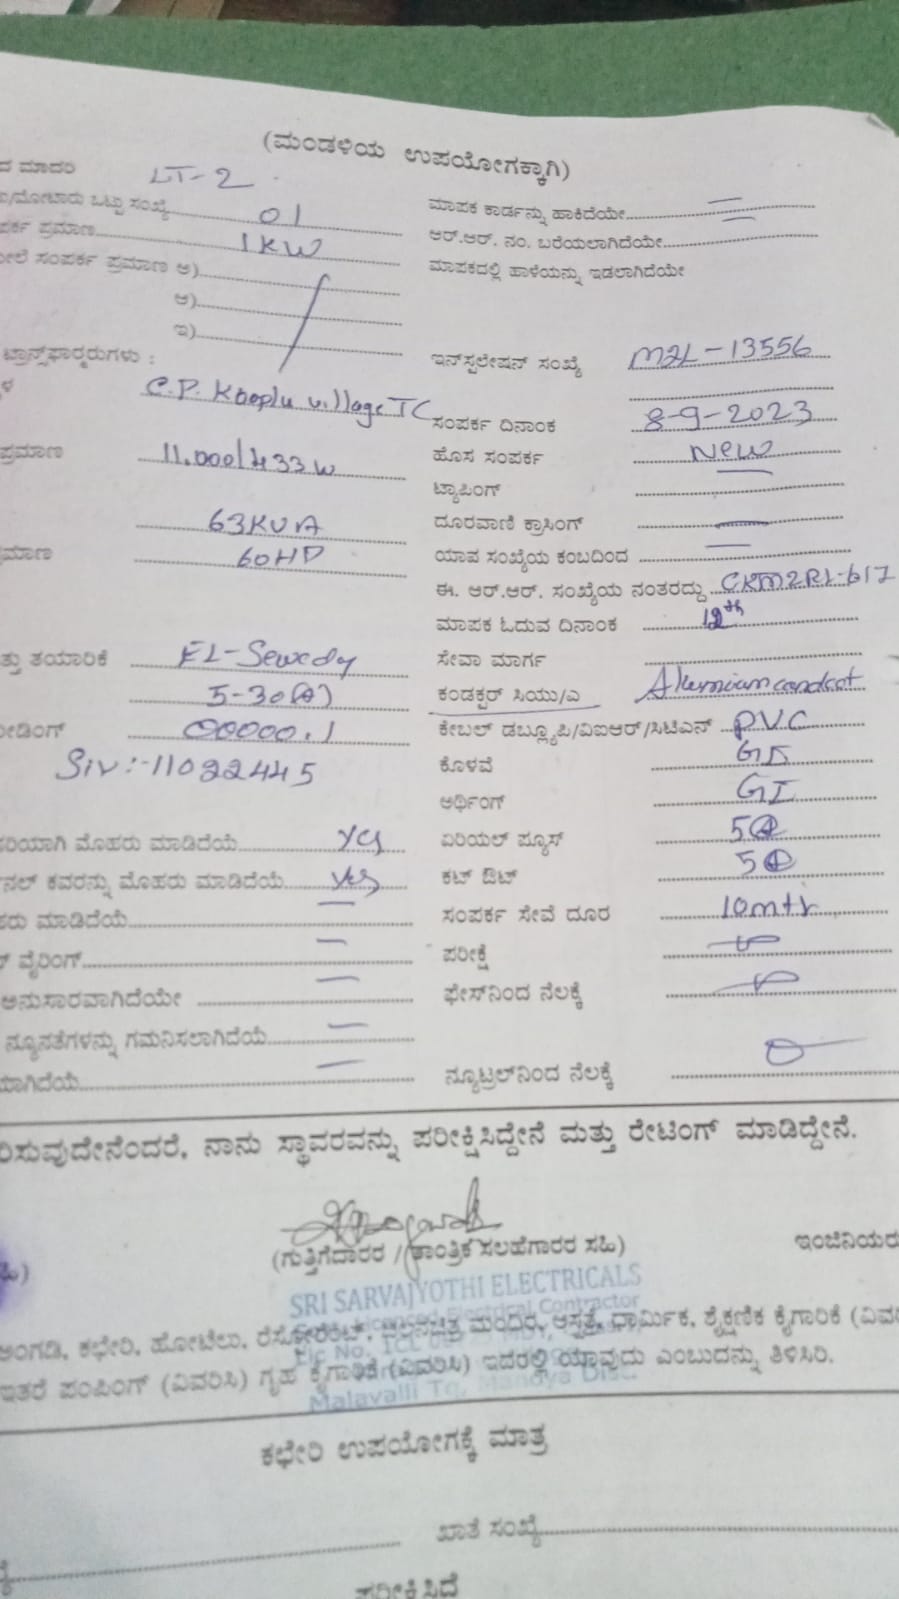 (ಮಂಡಳಿಯ ಉಪಯೋಗಕ್ಕಾಗಿ)
ದ ಮಾದರಿ LT-2
ಮೋಟಾರು ಒಟ್ಟು ಸಂಖ್ಯೆ 01
ಮಾಪಕ ಕಾರ್ಡನ್ನು ಹಾಕಿದೆಯೇ
ಪರ್ಕ ಪ್ರಮಾಣ 1KW
ಆರ್.ಆರ್. ನಂ. ಬರೆಯಲಾಗಿದೆಯೇ
ಸಂಪರ್ಕ ಪ್ರಮಾಣ ಅ)
ಮಾಪಕದಲ್ಲಿ ಹಾಳೆಯನ್ನು ಇಡಲಾಗಿದೆಯೇ
ಆ)
ಇ)
ಟ್ರಾನ್ಸ್‌ಫಾರ್ಮರುಗಳು :
ಇನ್‌ಸ್ಟಲೇಷನ್ ಸಂಖ್ಯೆ M2L-13556
ಳ C.P. Kooplu village TC
ಸಂಪರ್ಕ ದಿನಾಂಕ 8-9-2023
ಪ್ರಮಾಣ 11.000/433
ಹೊಸ ಸಂಪರ್ಕ New
ಟ್ಯಾಪಿಂಗ್
63KVA
ದೂರವಾಣಿ ಕ್ರಾಸಿಂಗ್
ಮಾಣ 60HP
ಯಾವ ಸಂಖ್ಯೆಯ ಕಂಬದಿಂದ
ಈ. ಆರ್.ಆರ್. ಸಂಖ್ಯೆಯ ನಂತರದ್ದು CKM2RL-617
ಮಾಪಕ ಓದುವ ದಿನಾಂಕ 12th
ತ್ತು ತಯಾರಿಕೆ EL-Sewedy
ಸೇವಾ ಮಾರ್ಗ
5-30(A)
ಕಂಡಕ್ಟರ್ ಸಿಯು/ಎ
ೀಡಿಂಗ್ 00000.1
ಕೇಬಲ್ ಡಬ್ಲ್ಯೂಪಿ/ವಿಐಆರ್/ಸಿಟಿಎಸ್ PVC
Siv:-11022445
ಕೊಳವೆ GI
ಅರ್ಥಿಂಗ್ GI
ರಿಯಾಗಿ ಮೊಹರು ಮಾಡಿದೆಯೆ yes
ಏರಿಯಲ್ ಫ್ಯೂಸ್ 5A
ನಲ್ ಕವರನ್ನು ಮೊಹರು ಮಾಡಿದೆಯೆ yes
ಕಟ್ ಔಟ್ 5A
ಹರು ಮಾಡಿದೆಯೆ
ಸಂಪರ್ಕ ಸೇವೆ ದೂರ 10mtr
ವೈರಿಂಗ್
ಪರೀಕ್ಷೆ
ಅನುಸಾರವಾಗಿದೆಯೇ
ಫೇಸ್‌ನಿಂದ ನೆಲಕ್ಕೆ
ನ್ಯೂನತೆಗಳನ್ನು ಗಮನಿಸಲಾಗಿದೆಯೆ
ಮಾಗಿದೆಯೆ
ನ್ಯೂಟ್ರಲ್‌ನಿಂದ ನೆಲಕ್ಕೆ
ರಿಸುವುದೇನೆಂದರೆ, ನಾನು ಸ್ಥಾವರವನ್ನು ಪರೀಕ್ಷಿಸಿದ್ದೇನೆ ಮತ್ತು ರೇಟಿಂಗ್ ಮಾಡಿದ್ದೇನೆ.
(ಗುತ್ತಿಗೆದಾರರ / ತಾಂತ್ರಿಕ ಸಲಹೆಗಾರರ ಸಹಿ)
ಇಂಜಿನಿಯರು
SRI SARVAJYOTHI ELECTRICALS
Licenced Electrical Contractor
ಅಂಗಡಿ, ಕಛೇರಿ, ಹೋಟೆಲು, ರೆಸ್ಟೋರೆಂಟ್, ಮಂದಿರ, ಆಸ್ಪತ್ರೆ, ಧಾರ್ಮಿಕ, ಶೈಕ್ಷಣಿಕ ಕೈಗಾರಿಕೆ (ವಿವರಿ
ಇತರೆ ಪಂಪಿಂಗ್ (ವಿವರಿಸಿ) ಗೃಹ ಕೈಗಾರಿಕೆ (ವಿವರಿಸಿ) ಇದರಲ್ಲಿ ಯಾವುದು ಎಂಬುದನ್ನು ತಿಳಿಸಿರಿ.
Malavalli Tq, Mandya Dist.
ಕಛೇರಿ ಉಪಯೋಗಕ್ಕೆ ಮಾತ್ರ
ಖಾತೆ ಸಂಖ್ಯೆ
ಪರೀಕ್ಷಿಸಿದೆ